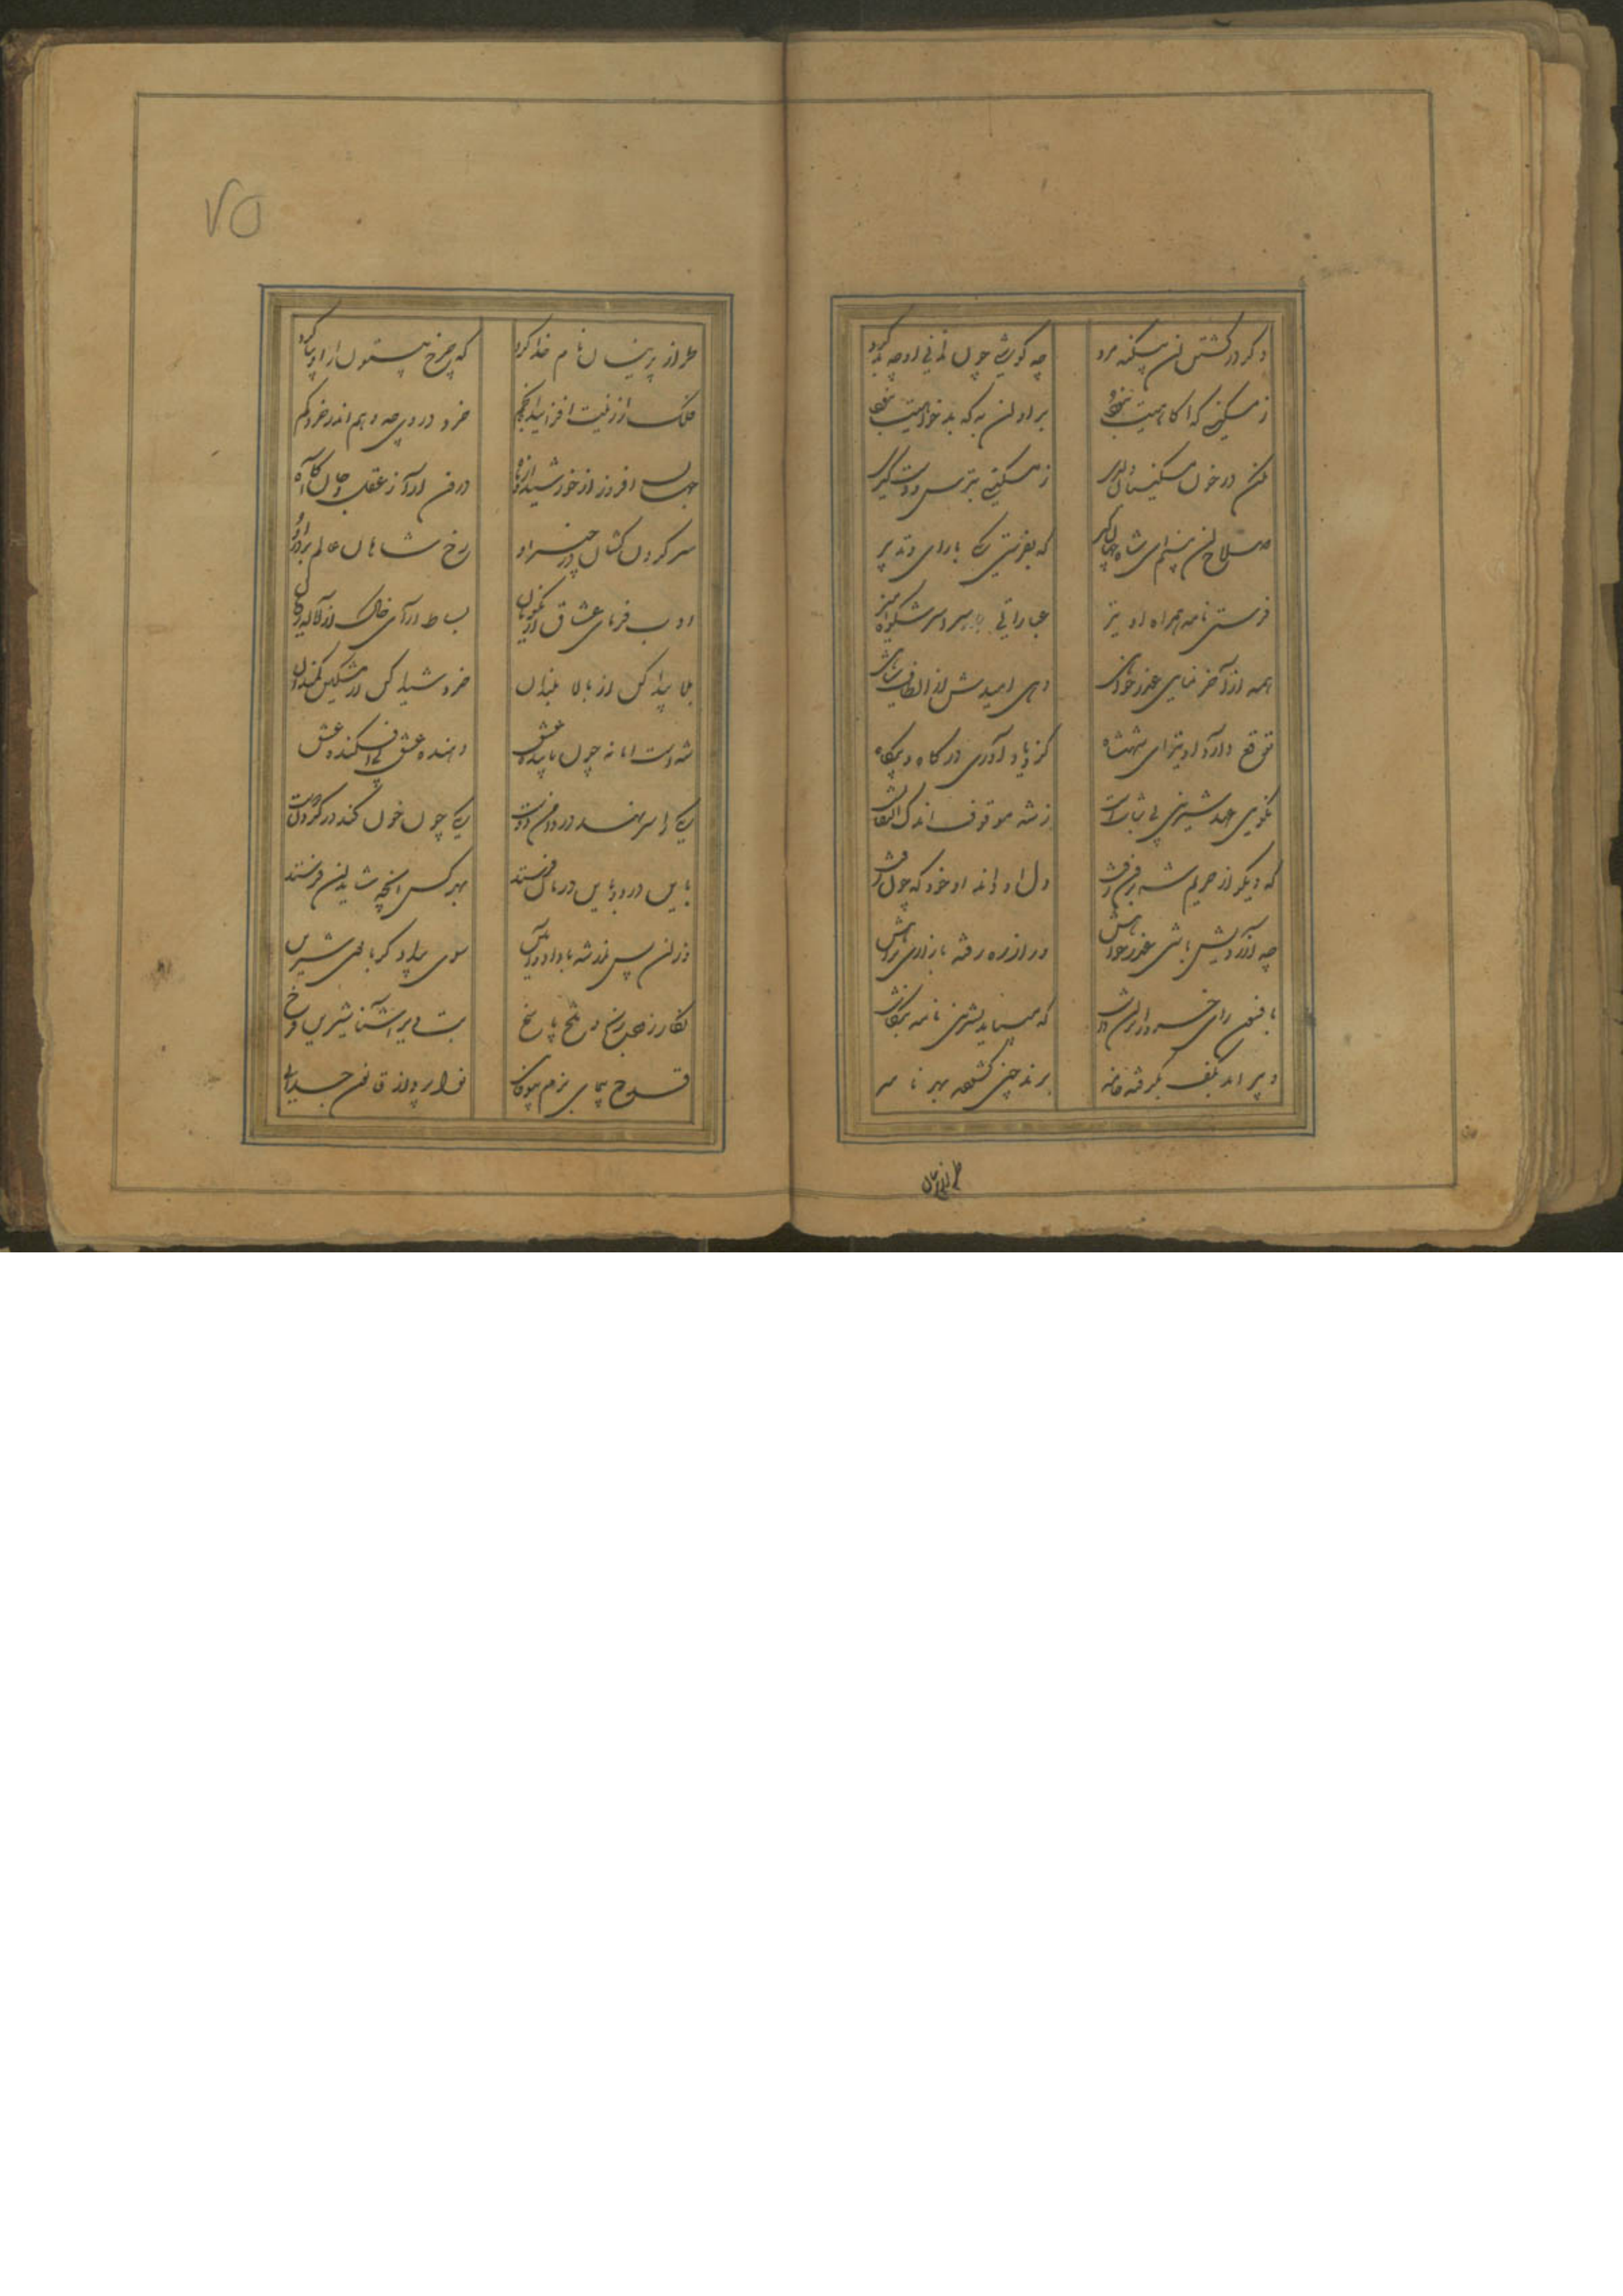 دگر در کشتن آن سکنه مرد
چه گویی چون ندانی او چه بد کرد
ز مسکینی که آگاهیت نبود
بر او آن به که بدخواهیت نبود
مکن در خون مسکینان دلیری
ز مسکینی بترس و دست گیری
صلاح آن بینم ای شاه جهانگیر
که بفریبی به یارای و تدبیر
فرستی نامه همراه او نیز
عباراتی سراسر شکوه آمیز
همه از آخر نمایی عذرخواهی
دهی امیدش از الطاف شاهی
توقع دارد او نیز ای شهنشاه
کز او یاد آوری در گاه و بیگاه
نگویی عهد شیرین بی ثبات است
ز شه موقوف اندک التفات است
که دیگر از حریم شه برون رفت
دل او داند او خود که چون رفت
چه آزردیش باشی عذر خواهش
ور از ره رفته باز آری به راهش
به افسون رای خسرو را بر آن داشت
که می باید به شیرین نامه بنگاشت
دبیر آمد به کف بگرفته خامه
پرند چین گشودش بهر نامه
طراز پرنیان
طراز پرنیان نام خدا کرد
که چرخ بیستون را او بپا کرد
فلک از زینت افزایید انجم
خرد در وی چه وهم اندر خرد گم
جهان افروز از خورشید و از ماه
درون آرا ز عقل و جان آگاه
سر گردن کشان در چنبر او
رخ شاهان عالم بر در او
ادب فرمای عشاق از نکویان
بساط آرای خاک از لاله رویان
بلا پیدا کن از بالا بلندان
خرد شیدا کن از مشکین کمندان
شه است اما نه چون ما بنده عشق
دهنده عشق و افکنده عشق
یکی را سر نهد در دامن دوست
یکی چون خون کند در گردن اوست
به این درد و به این درمان فرستد
بهر کس آنچه شاید آن فرستد
از آن پس از شه با داد و آیین
سوی بیدادگر بانوی شیرین
نگار زهر رنج و تلخ پاسخ
بت دیر آشنا شیرین فرخ
قدح پیمای بزم بیوفایی
نوا پرداز قانون جدایی
۷۵